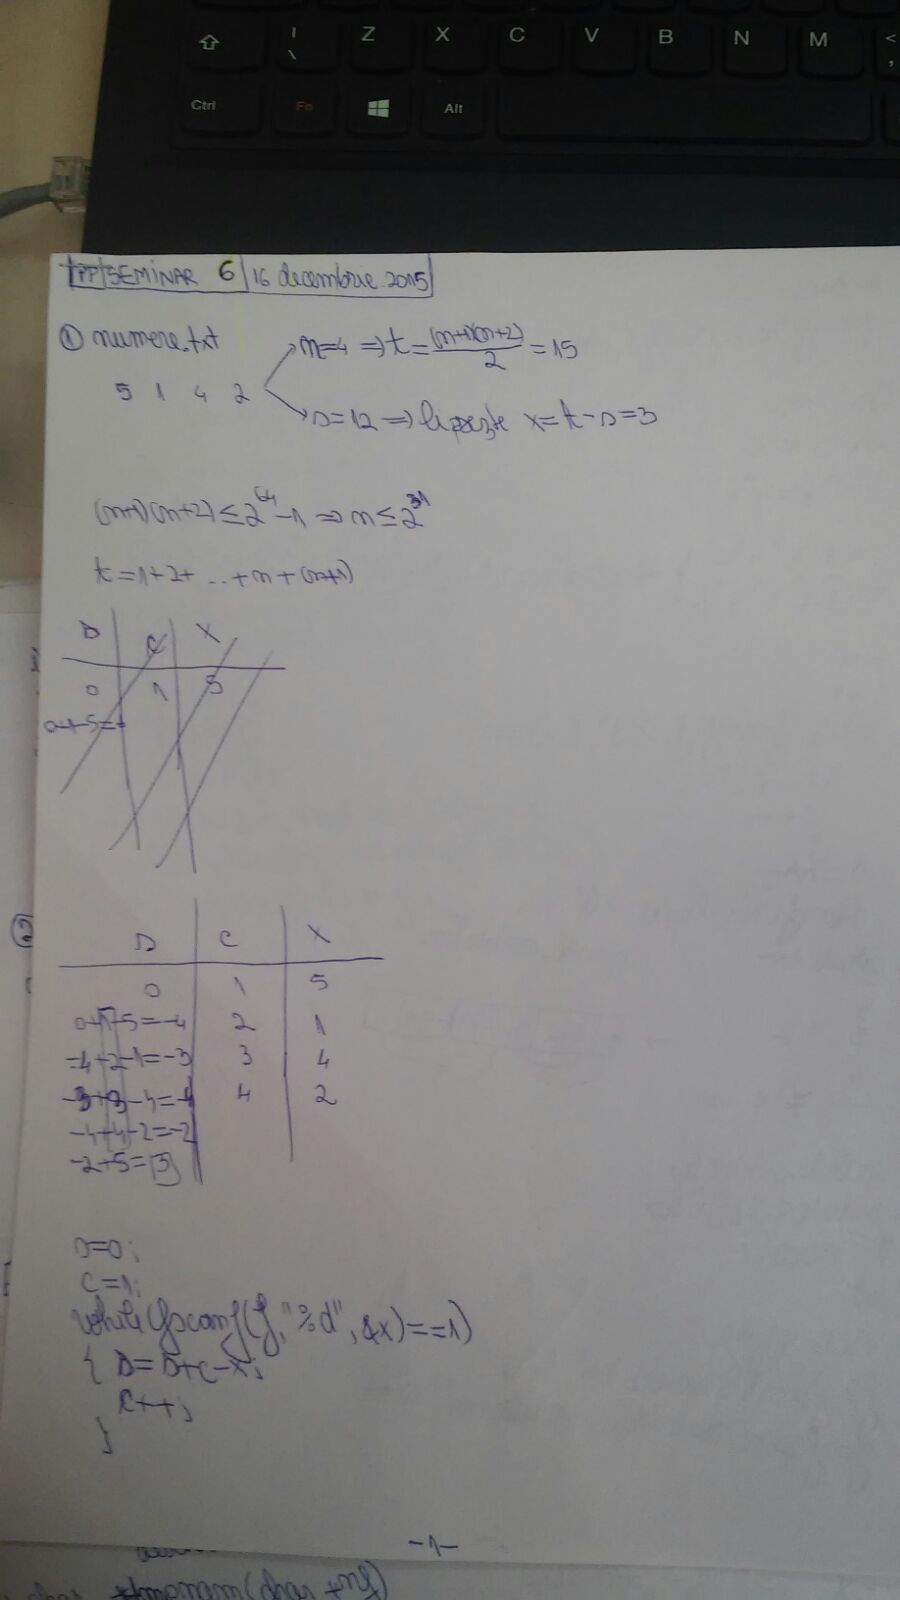 Z X C V B N M <
\ ,
Ctrl Fn Alt
TPP SEMINAR 6 16 decembrie 2015
① numere.txt
n=4 => t=(n+1)(n+2)/2 =15
5 1 4 2
s=12 => lipsește x=t-s=3
(n+1)(n+2)≤2^64-1 => n≤2^31
t=1+2+...+n+(n+1)
D C X
0 1 5
0+1-5=
②
D C X
0 1 5
0+1-5=-4 2 1
-4+2-1=-3 3 4
-3+3-4=-4 4 2
-4+4-2=-2
-2+5=3
D=0;
C=1;
while(fscanf(f,"%d",&x)==1)
{ D=D+C-X;
C++;
}
-1-
char